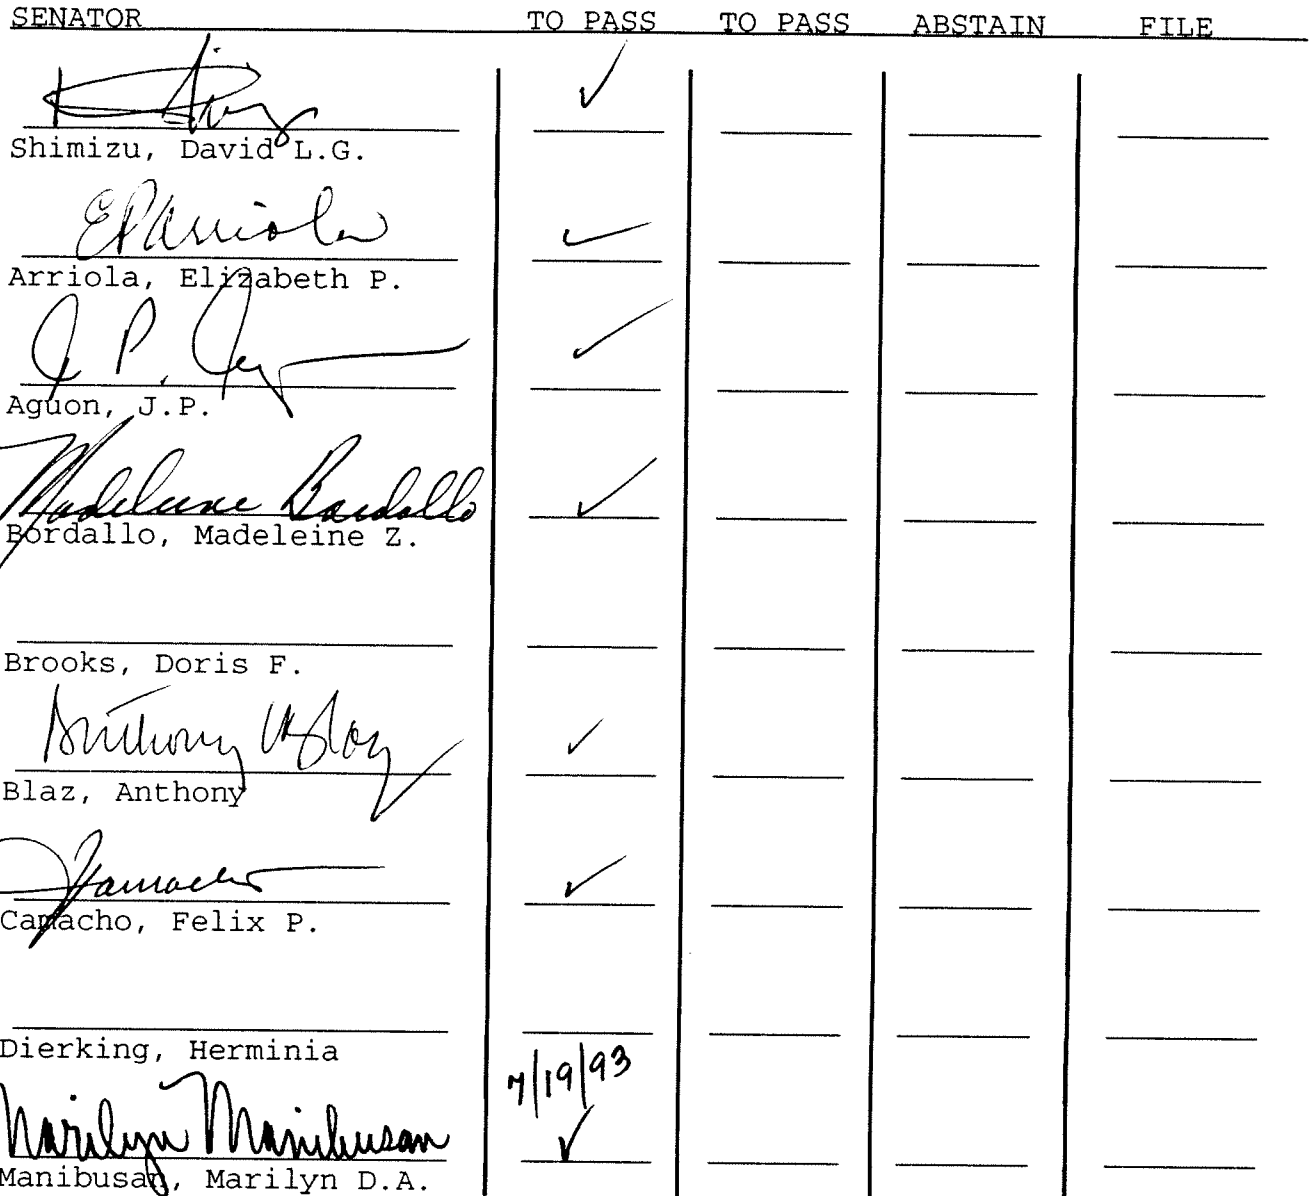 SENATOR TO PASS TO PASS ABSTAIN FILE
✓
Shimizu, David L.G.
EPArriola ✓
Arriola, Elizabeth P.
J. P. ✓
Aguon, J.P.
Madeleine Bordallo ✓
Bordallo, Madeleine Z.
Brooks, Doris F.
Anthony Blaz ✓
Blaz, Anthony
Camacho ✓
Camacho, Felix P.
Dierking, Herminia
7/19/93
Marilyn Manibusan ✓
Manibusan, Marilyn D.A.